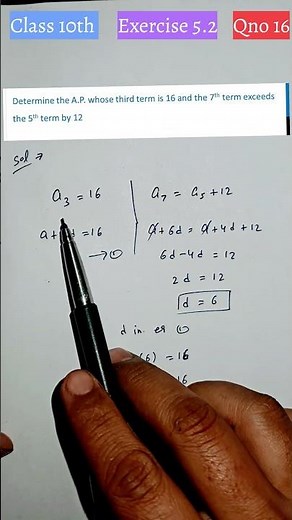 Class 10th Exercise 5.2 Qno 16
Determine the A.P. whose third term is 16 and the 7th term exceeds
the 5th term by 12
Sol →
a₃ = 16
a+ d = 16
→ ①
a₇ = a₅ + 12
a + 6d = a + 4d + 12
6d - 4d = 12
2d = 12
d = 6
d in eq ①
(6) = 16
= 16